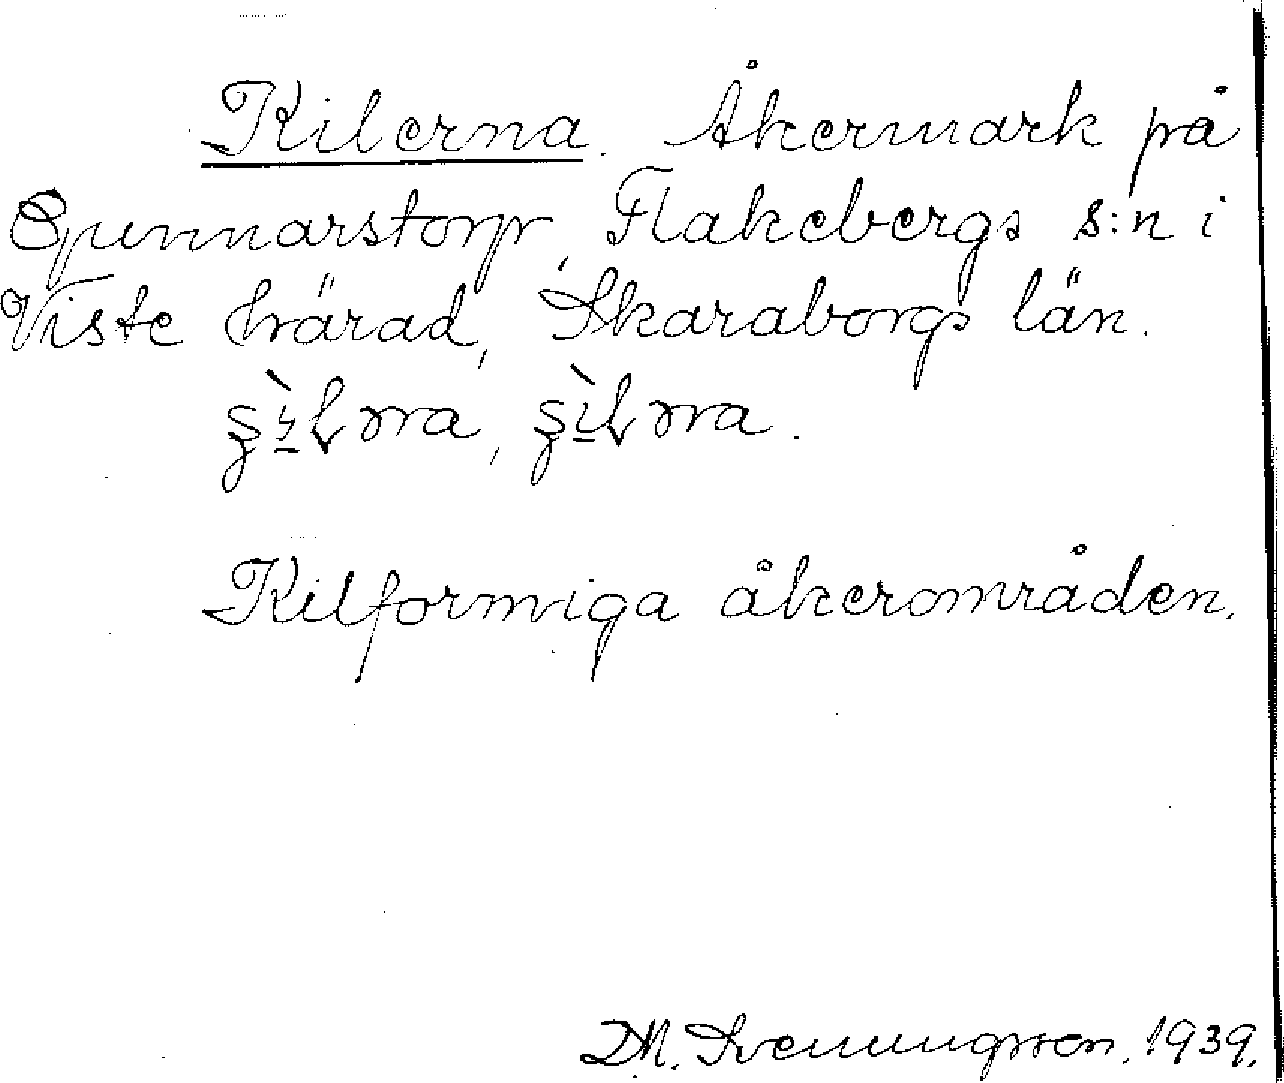 Kilerna. Åkermark på
Gunnarstorp, Flakebergs s:n i
Viste härad, Skaraborgs län.
Kilformiga åkerområden.
D.M. Svenungsson. 1939.